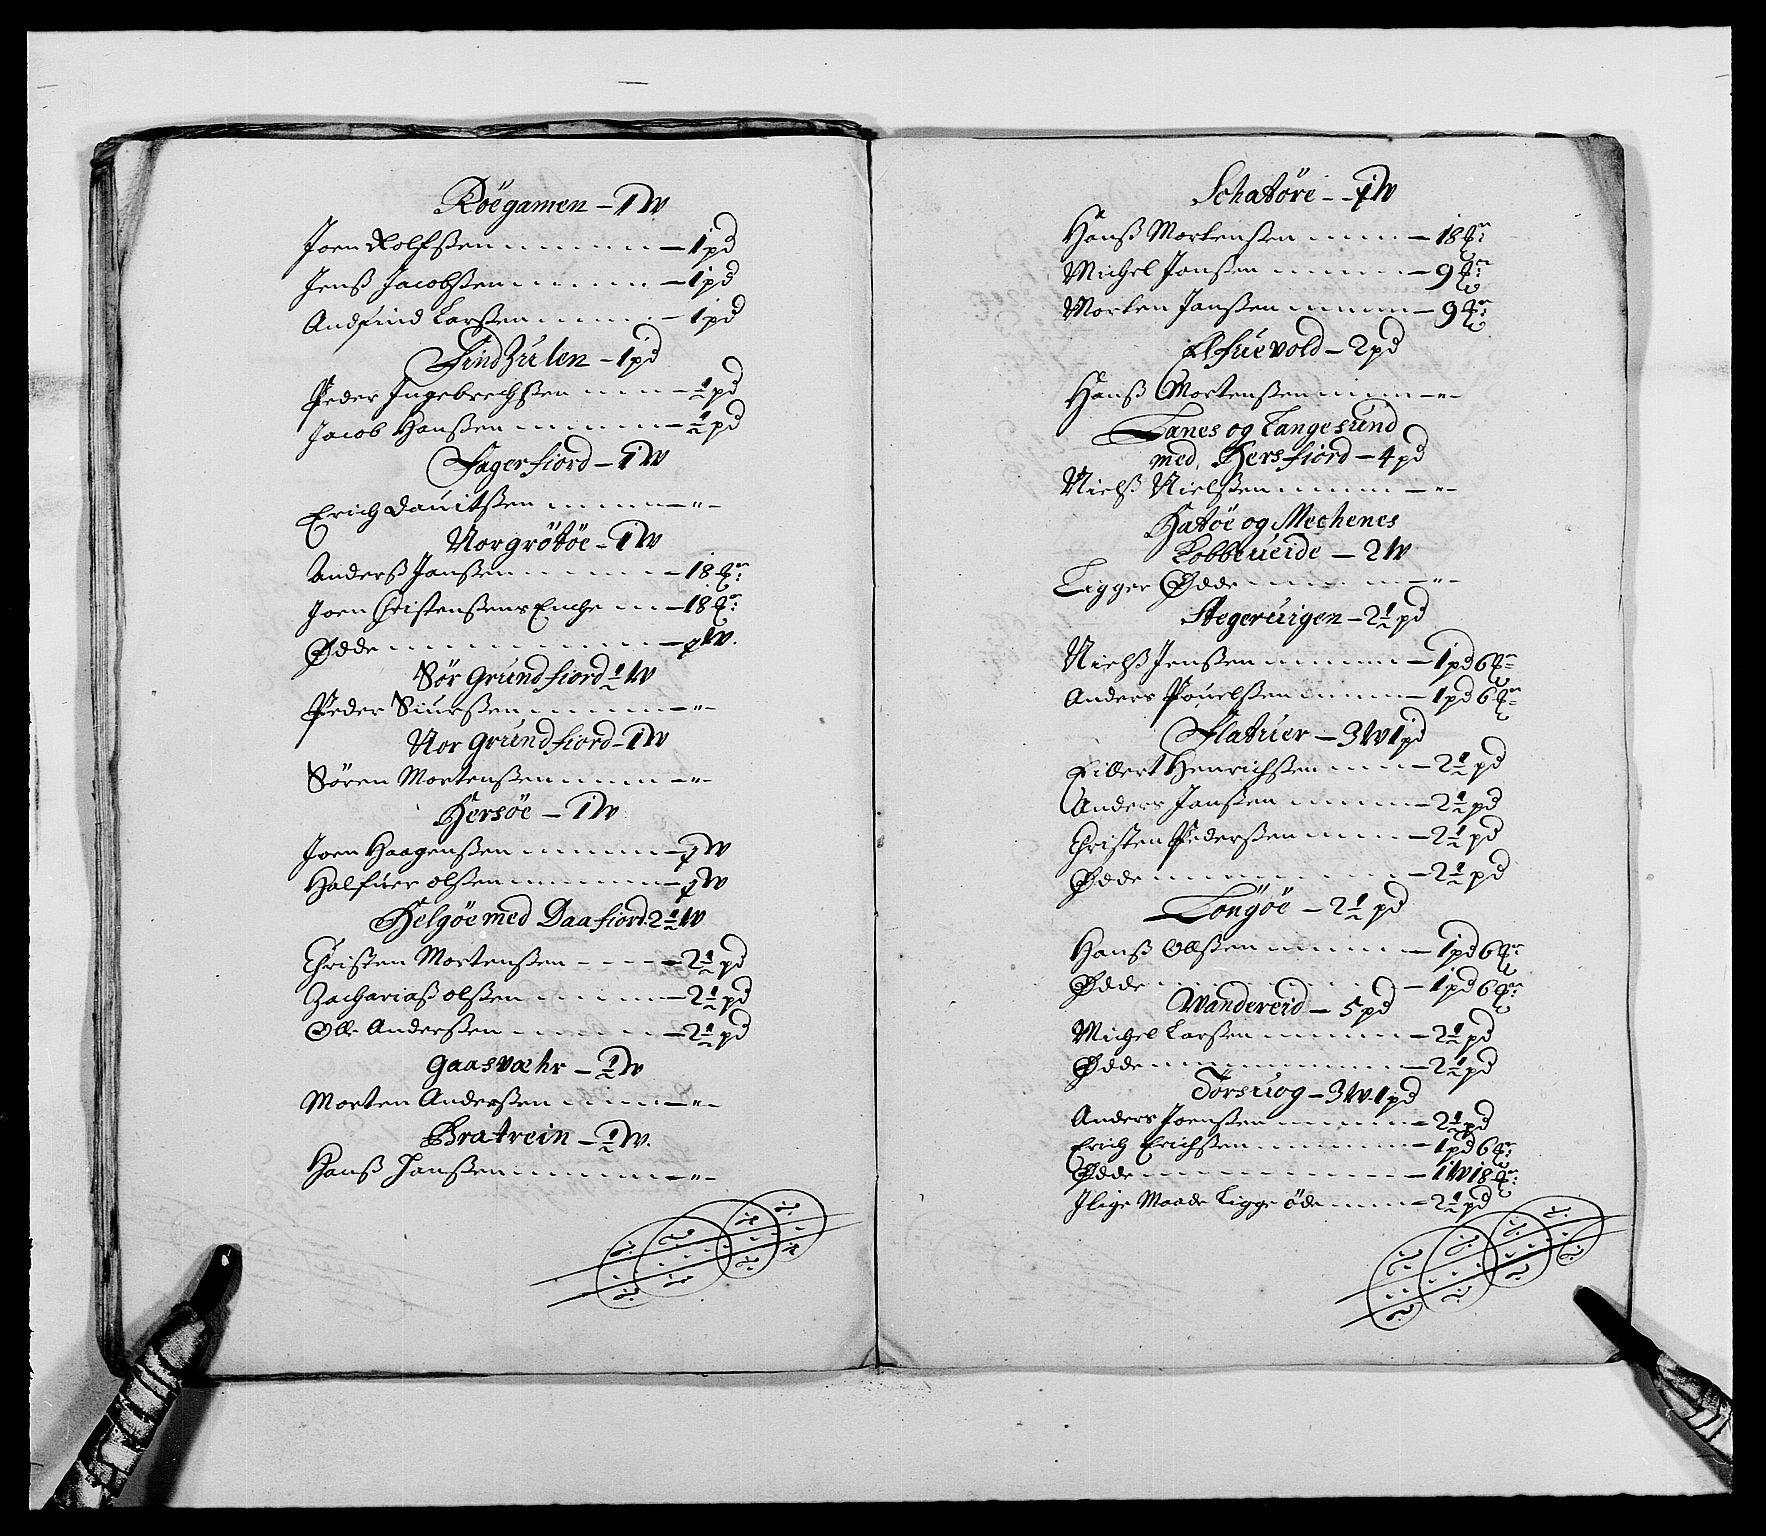 Röegamen – 1 W
Joen Rolfsen – 1 pd
Jenß Jacobsen – 1 pd
Andfind Larsen – 1 pd
Findhulen – 1 pd
Peder Ingebrechsen – ½ pd
Jacob Hansen – ½ pd
Fagerfiord – 1 W
Erich Dauitsen – " –
Norgrötöe – 1 W
Anderß Jansen – 18
Joen Christensens Enche – 18
Ödde – ½ W.
Sör grundfiord ½ W
Peder Siursen – " –
Nor grundfiord – 1 W
Sören Mortensen – " –
Hersöe – 1 W
Joen Haagensen – ½ W
Halfuer olsen – ½ W
Helgöe med Daafiord 2½ W
Christen Mortensen – 2½ pd
Zachariaß olsen – 2½ pd
Olle Andersen – 2½ pd
Gaasvæhr – ½ W
Morten Andersen – " –
Bratrein – ½ W.
Hanß Hansen – " –
Schatöre – ½ W
Hanß Mortensen – 18
Michel Jonsen – 9
Morten Jansen – 9
Afuevold – 2 pd
Hanß Mortensen – " –
Lanes og Langesund
med Hersfiord – 4 pd
Nielß Nielsen – " –
Hatöe og Mechenes
Kobbeueide – 2 W
Ligger Ödde – " –
Stegeruigen – 2½ pd
Nielß Jensen – 1 pd 6
Anders Pouelsen – 1 pd 6
Flatuer – 3 W 1 pd
Eillert Henrichsen – 2½ pd
Anders Jansen – 2½ pd
Christen Pedersen – 2½ pd
Ödde – 2½ pd
Longöe – 2½ pd
Hanß Ollsen – 1 pd 6
Ödde – 1 pd 6
Wandereid – 5 pd
Michel Larsen – 2½ pd
Ödde – 2½ pd
Torsuog – 3 W 1 pd
Anders Joensen – 2½ pd
Erich Erichsen – 1 pd 6
Ödde – 1 W 18
Ilige Maade Ligge öde – 2½ pd